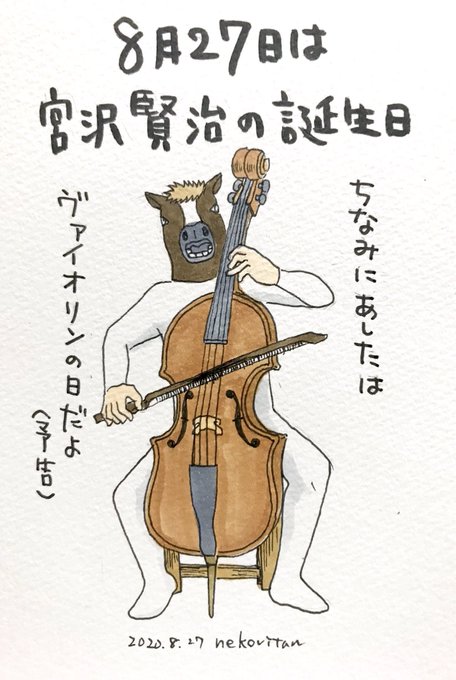 8月27日は
宮沢賢治の誕生日
ちなみにあしたは
ヴァイオリンの日だよ
(予告)
2020.8.27 nekovitan